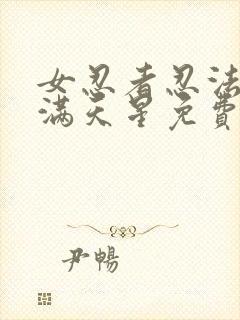 女忍者忍法
满天星免费
尹暢